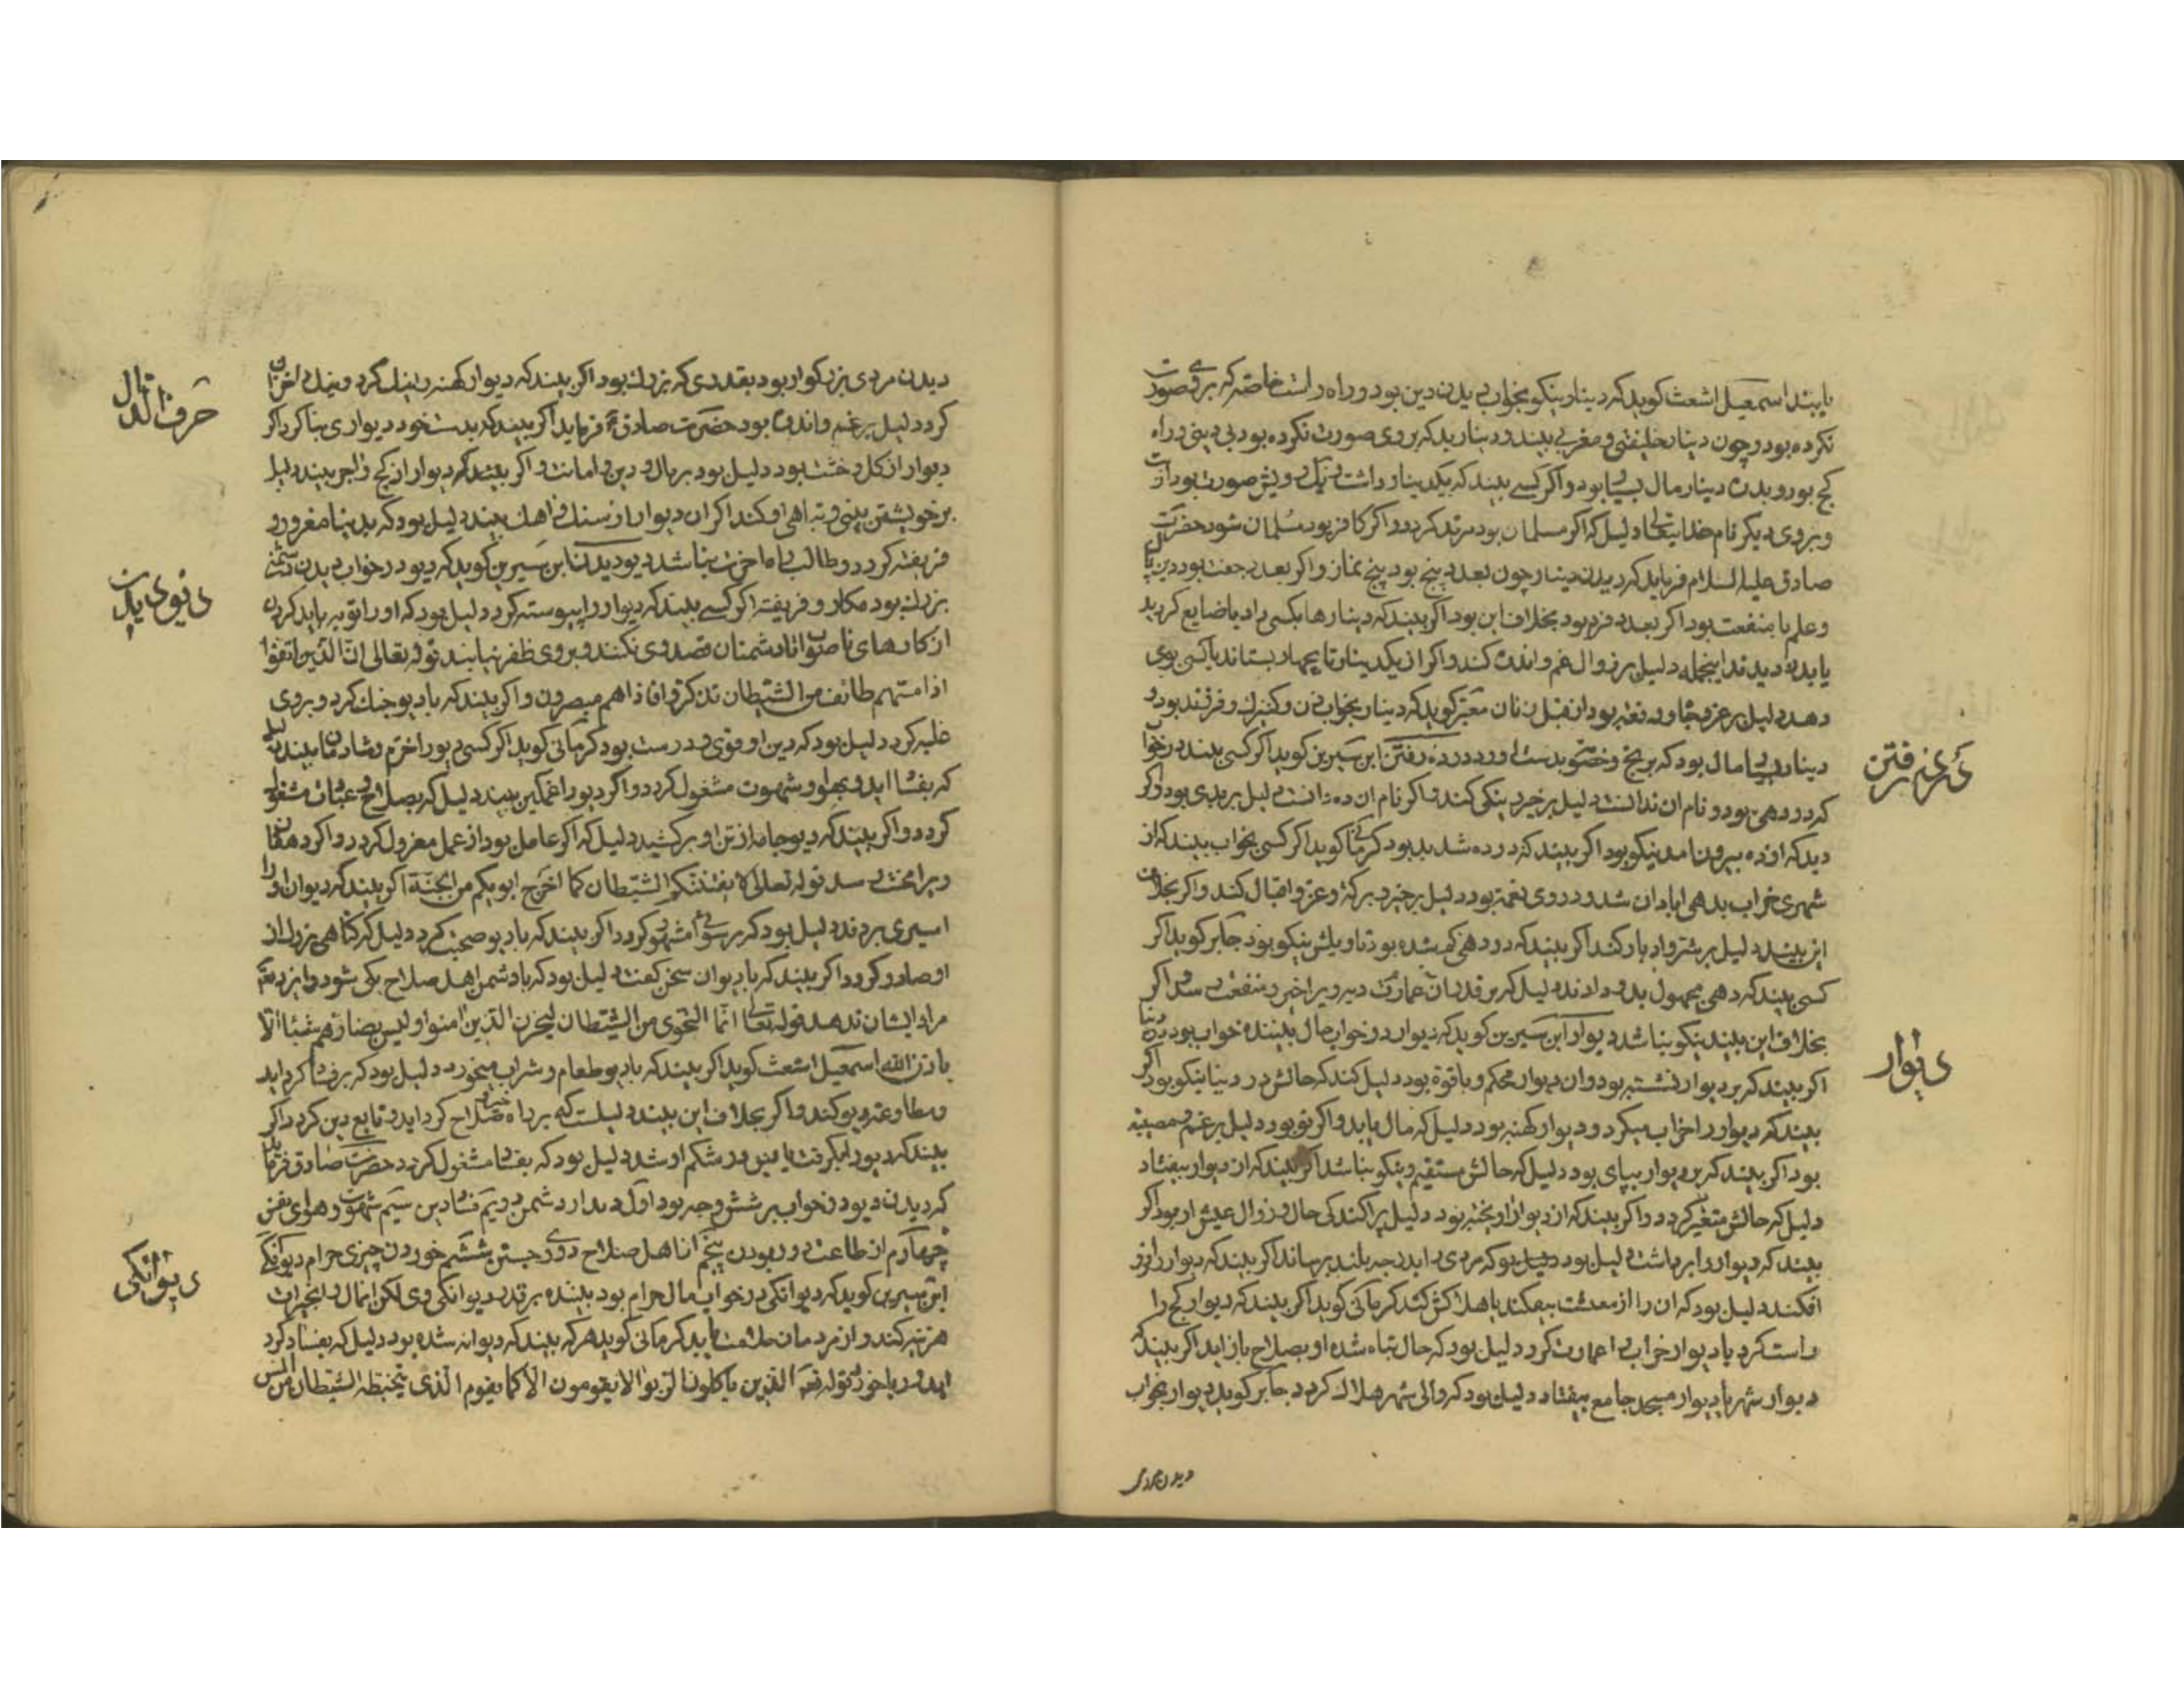 یابند اسمعیل اشعث کوید که دینار نیکو بخواب دیدن دین بود و راه راست خاصه که بر وی صورت
نکرده بود و چون دینار خلیفتی و مغربی بیند و دینار بد که بر وی صورت نکرده بود بی دینی و راه
کج بود و بدن دینار مال بسیار بود و اکر کسی بیند که یکدینار داشت صورت بود
و بروی دیکر نام خدایتعالی دلیل که اکر مسلمان بود مرتد کردد و اکر کافر بود مسلمان شود حضرت
صادق علیه السلام فرماید که دیدن دینار چون بعدد پنج بود پنج نماز و اکر بعدد جفت بود دین پاک
و علم با منفعت بود اکر بعدد فرد بود بخلاف این بود اکر بیند که دینارها بکسی داد یا ضایع کرد
یا بدو دیدند اینجمله دلیل بر زوال غم و اندیشه کند و اکر از یکدینار تا چهار بستاند یا کسی بوی
دهد دلیل بر عز و جاه معبر کوید که دینار بخواب زن و کنیزک و فرزند بود و
دینار بسیار مال بود که برنج و خصومت بدست آورد در ده رفتن ابن سیرین کوید اکر کسی بیند در خواب
که در دهی بود و نام ان ندانست دلیل بر خیر و نیکی کند و اکر نام ان ده دانست دلیل بر بدی بود و اکر
دید که از ده بیرون امد نیکو بود اکر بیند که در ده شد بد بود کرمانی کوید اکر کسی بخواب بیند که از
شهری خراب بدهی ابادان شد و در وی نعمت بود دلیل بر خیر و برکة و عز و اقبال کند و اکر بخلاف
این بیند دلیل بر شر و ادبار کند اکر بیند که در دهی کم شده بود تاویلش نیکو بود جابر کوید اکر
کسی بیند که دهی مجهول بدو دادند دلیل که بر قدر ان عمارت ده ویرا خیر و منفعت رسد و اکر
بخلاف این بیند نیکو نباشد دیوار ابن سیرین کوید که دیوار در خواب حال بیننده خواب بود در دنیا
اکر بیند که بر دیوار نشسته بود و ان دیوار محکم و با قوة بود دلیل کند که حالش در دنیا نیکو بود اکر
بیند که دیوار را خراب میکرد و دیوار کهنه بود دلیل که مال یابد و اکر نو بود دلیل بر غم و مصیبت
بود اکر بیند که بر دیوار بپای بود دلیل که حالش مستقیم و نیکو نباشد اکر بیند که ان دیوار بیفتاد
دلیل که حالش متغیر کردد و اکر بیند که از دیوار اویخته بود دلیل پراکندکی حال و زوال عیش او بود اکر
بیند که دیوار را بر داشت دلیل بود که مردی را بدرجه بلند برساند اکر بیند که دیوار را فرو
افکند دلیل بود که ان را از معیشت بیفکند یا هلاکش کند کرمانی کوید اکر بیند که دیوار کج را
راست کرد یا دیوار خراب را عمارت کرد دلیل بود که حال تباه شده او بصلاح باز اید اکر بیند که
دیوار شهر یا دیوار مسجد جامع بیفتاد دلیل بود که والی شهر هلاک کردد جابر کوید دیوار بخواب
دیدن مردی
در ده رفتن
دیوار
دیدن مردی بزرکوار بود بقدری که بزرك بود اکر بیند که دیوار کهنه را نیك کرد و نیك را خراب
کرد دلیل بر غم و اندوه بود حضرت صادق ع فرماید اکر بیند که بدست خود دیواری بنا کرد اکر
دیوار از کل و خشت بود دلیل بود بر مال و دین و امانت و اکر بیند که دیوار از کج و اجر بیند دلیل
بر خویشتن بینی و تباهی او کند اکر ان دیوار از سنك و اهك بیند دلیل بود که بدنیا مغرور و
فریفته کردد و طالب راه اخرت نباشد دیو دیدن ابن سیرین کوید که دیو در خواب دیدن دشمن
بزرك بود مکار و فریفته اکر کسی بیند که دیو او را پیوسته کرد دلیل بود که او را توبه باید کردن
از کارهای ناصواب تا دشمنان قصد وی نکنند و بر وی ظفر نیابند قوله تعالی ان الذین اتقوا
اذا مستهم طائف من الشیطان تذکروا فاذا هم مبصرون و اکر بیند که با دیو جنك کرد و بروی
غلبه کرد دلیل بود که دین او قوی و درست بود کرمانی کوید اکر کسی دیو را خرم و شادمان بیند دلیل
که بفساد اید و بهوا و شهوت مشغول کردد و اکر دیو را غمکین بیند دلیل که بصلاح و عبادت مشغول
کردد و اکر بیند که دیو جامه از تن او بر کشید دلیل که اکر عامل بود از عمل معزول کردد و اکر دهقان
ویرا محنت رسد قوله تعالی لا یفتننکم الشیطان کما اخرج ابویکم من الجنة اکر بیند که دیوان او را
اسیری بردند دلیل بود که برسوائی مشهور کردد اکر بیند که با دیو صحبت کرد دلیل که کناهی بزرك از
او صادر کردد اکر بیند که با دیوان سخن کفت دلیل بود که با دشمن اهل صلاح یکی شود و ایزد تعالی
مراد ایشان ندهد قوله تعالی انما النجوی من الشیطان لیحزن الذین امنوا و لیس بضارهم شیئا الا
باذن الله اسمعیل اشعث کوید اکر بیند که با دیو طعام و شراب میخورد دلیل بود که بر فساد کراید
و مطاوعت دیو کند و اکر بخلاف این بیند دلیلست که بر راه خیر و صلاح کراید و تابع دین کردد اکر
بیند که دیو را بکرفت یا در شکم او شد دلیل بود که بفساد مشغول کردد حضرت صادق فرماید
که دیدن دیو در خواب بر شش وجه بود اول دیدار دشمن دویم فساد دین سیم شهوت و هوای نفس
چهارم از طاعت دور بودن پنجم از اهل صلاح دوری جستن ششم خوردن چیزی حرام دیوانکی
ابن سیرین کوید که دیوانکی در خواب مال حرام بود بیننده بر قدر دیوانکی وی لکن انمال را بخیرات
هزینه کند و از مردمان ملامت یابد کرمانی کوید هر که بیند که دیوانه شده بود دلیل که بفساد کرد
اید و ربا خورد قوله تعالی الذین یاکلون الربوا لا یقومون الا کما یقوم الذی یتخبطه الشیطان من المس
حرف الدال
دیو دیدن
دیوانکی